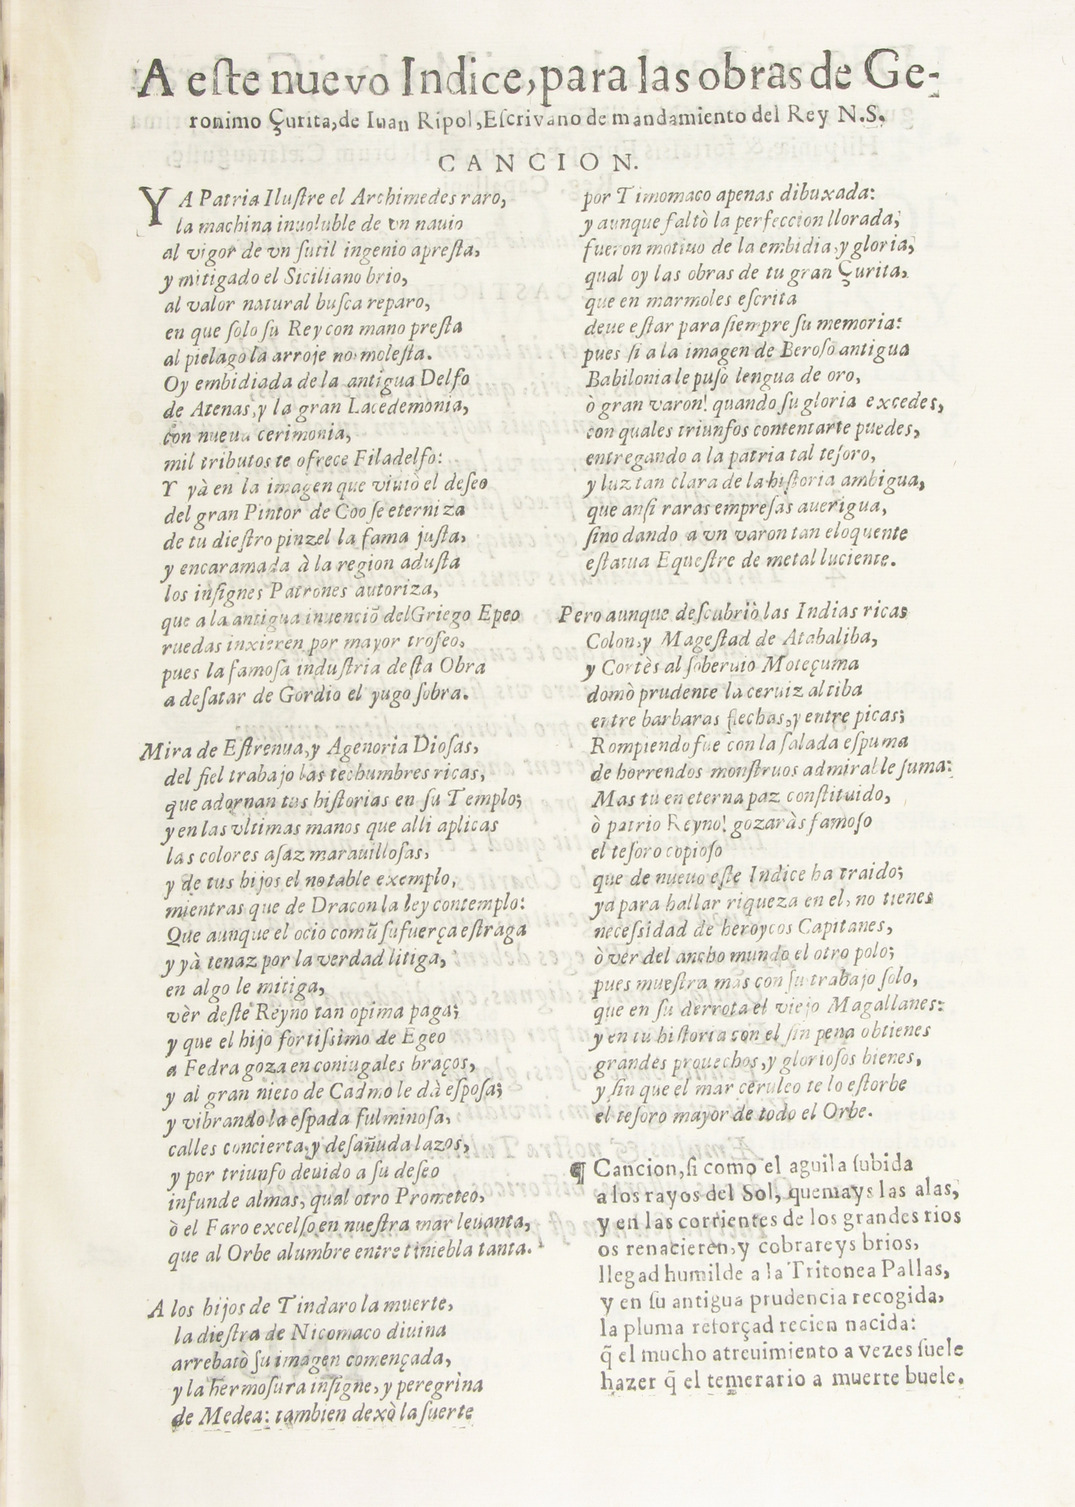 A este nuevo Indice, para las obras de Ge-
ronimo Çurita, de Iuan Ripol, Escrivano de mandamiento del Rey N.S.
CANCION.
YA Patria Ilustre el Archimedes raro,
la machina inuoluble de vn nauio
al vigor de vn sutil ingenio apresta,
y mitigado el Siciliano brio,
al valor natural busca reparo,
en que solo su Rey con mano presta
al pielago la arroje no molesta.
Oy embidiada de la antigua Delfo
de Atenas, y la gran Lacedemonia,
con nueua cerimonia,
mil tributos te ofrece Filadelfo:
Y yà en la imagen que viuiò el deseo
del gran Pintor de Coo se eterniza
de tu diestro pinzel la fama justa,
y encaramada à la region adusta
los insignes Patrones autoriza,
que a la antigua inuenciõ del Griego Epeo
ruedas inxieren por mayor trofeo,
pues la famosa industria desta Obra
a desatar de Gordio el yugo sobra.
Mira de Estrenua, y Agenoria Diosas,
del fiel trabajo las techumbres ricas,
que adornan tus historias en su Templo;
y en las vltimas manos que alli aplicas
las colores asaz marauillosas,
y de tus hijos el notable exemplo,
mientras que de Dracon la ley contemplo:
Que aunque el ocio comũ su fuerça estraga
y yà tenaz por la verdad litiga,
en algo le mitiga,
vèr deste Reyno tan opima paga;
y que el hijo fortissimo de Egeo
a Fedra goza en coniugales braços,
y al gran nieto de Cadmo le dà esposa;
y vibrando la espada fulminosa,
calles concierta, y desañuda lazos,
y por triunfo deuido a su deseo
infunde almas, qual otro Prometeo,
ò el Faro excelso, en nuestra mar leuanta,
que al Orbe alumbre entre tiniebla tanta.
A los hijos de Tindaro la muerte,
la diestra de Nicomaco diuina
arrebatò su imagen començada,
y la hermosura insigne, y peregrina
de Medea: tambien dexò la suerte
por Timomaco apenas dibuxada:
y aunque faltò la perfeccion llorada,
fueron motiuo de la embidia, y gloria,
qual oy las obras de tu gran Çurita,
que en marmoles escrita
deue estar para siempre su memoria:
pues si a la imagen de Beroso antigua
Babilonia le puso lengua de oro,
ò gran varon! quando su gloria excedes,
con quales triunfos contentarte puedes,
entregando a la patria tal tesoro,
y luz tan clara de la historia ambigua,
que ansi raras empresas auerigua,
sino dando a vn varon tan eloquente
estatua Equestre de metal luciente.
Pero aunque descubriò las Indias ricas
Colon, y Magestad de Atabaliba,
y Cortès al soberuio Moteçuma
domò prudente la ceruiz altiba
entre barbaras flechas, y entre picas;
Rompiendo fue con la salada espuma
de horrendos monstruos admirable suma:
Mas tu en eterna paz constituido,
ò patrio Reyno! gozaràs famoso
el tesoro copioso
que de nueuo este Indice ha traido;
ya para hallar riqueza en el, no tienes
necessidad de heroycos Capitanes,
ò vèr del ancho mundo el otro polo;
pues muestra mas con su trabajo solo,
que en su derrota el viejo Magallanes:
y en tu historia con el sin pena obtienes
grandes prouechos, y gloriosos bienes,
y sin que el mar ceruleo te lo estorbe
el tesoro mayor de todo el Orbe.
¶ Cancion, si como el aguila subida
a los rayos del Sol, quemays las alas,
y en las corrientes de los grandes rios
os renacieren, y cobrareys brios,
llegad humilde a la Tritonea Pallas,
y en su antigua prudencia recogida,
la pluma reforçad recien nacida:
q̃ el mucho atreuimiento a vezes suele
hazer q̃ el temerario a muerte buele.